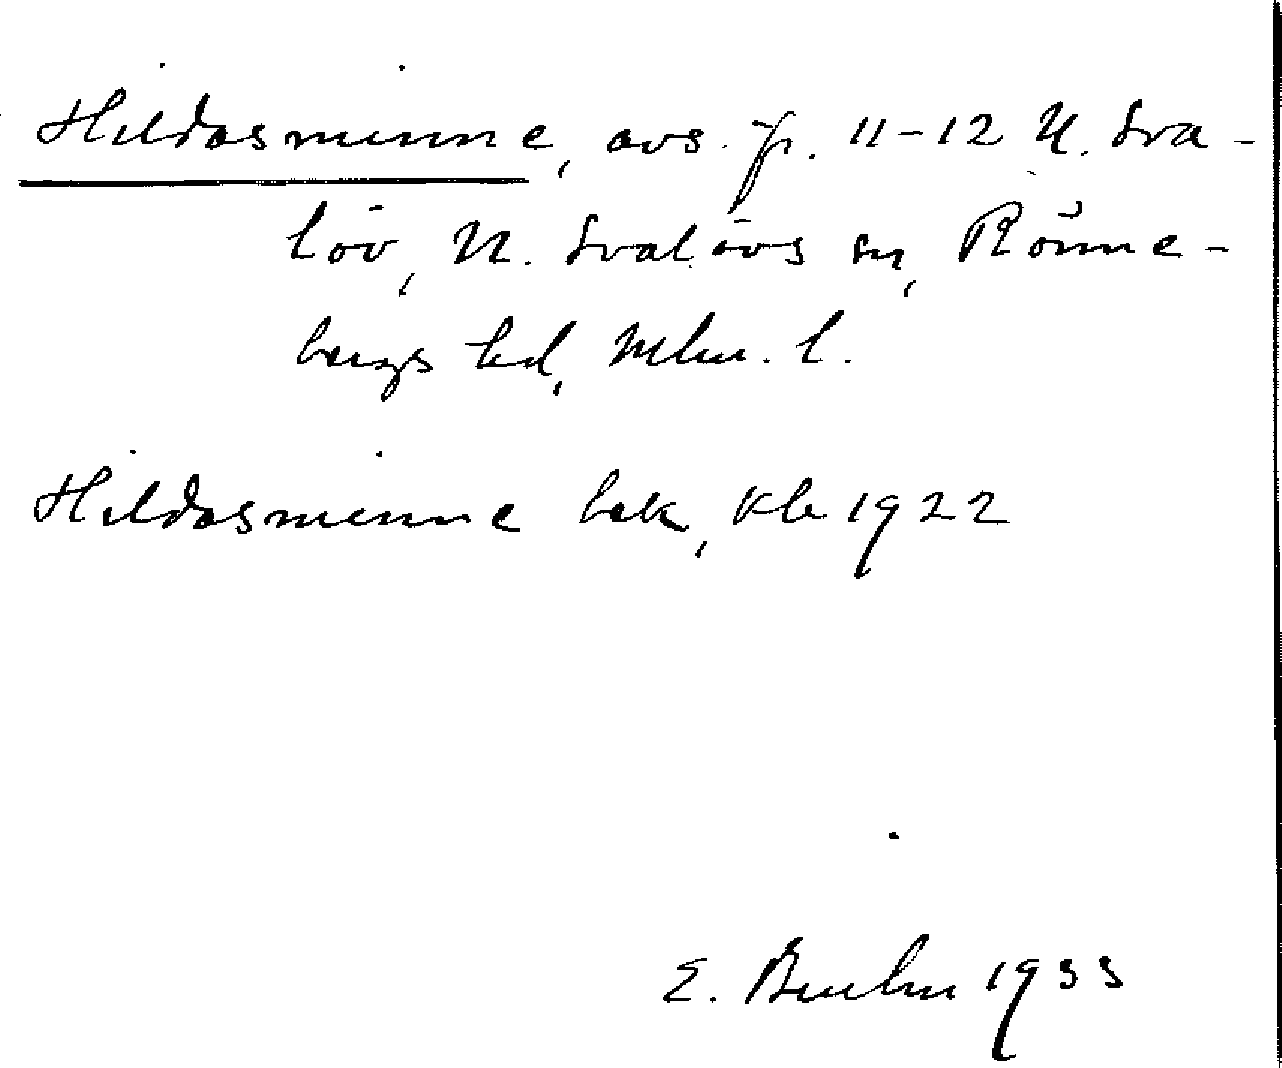 Hildasminne, avs. fr. 11-12 N. Sva-
löv, N. Svalövs sn, Rönne-
bergs hd, Mlm. l.
Hildasminne bek, Kb 1922
E. Bruhn 1933